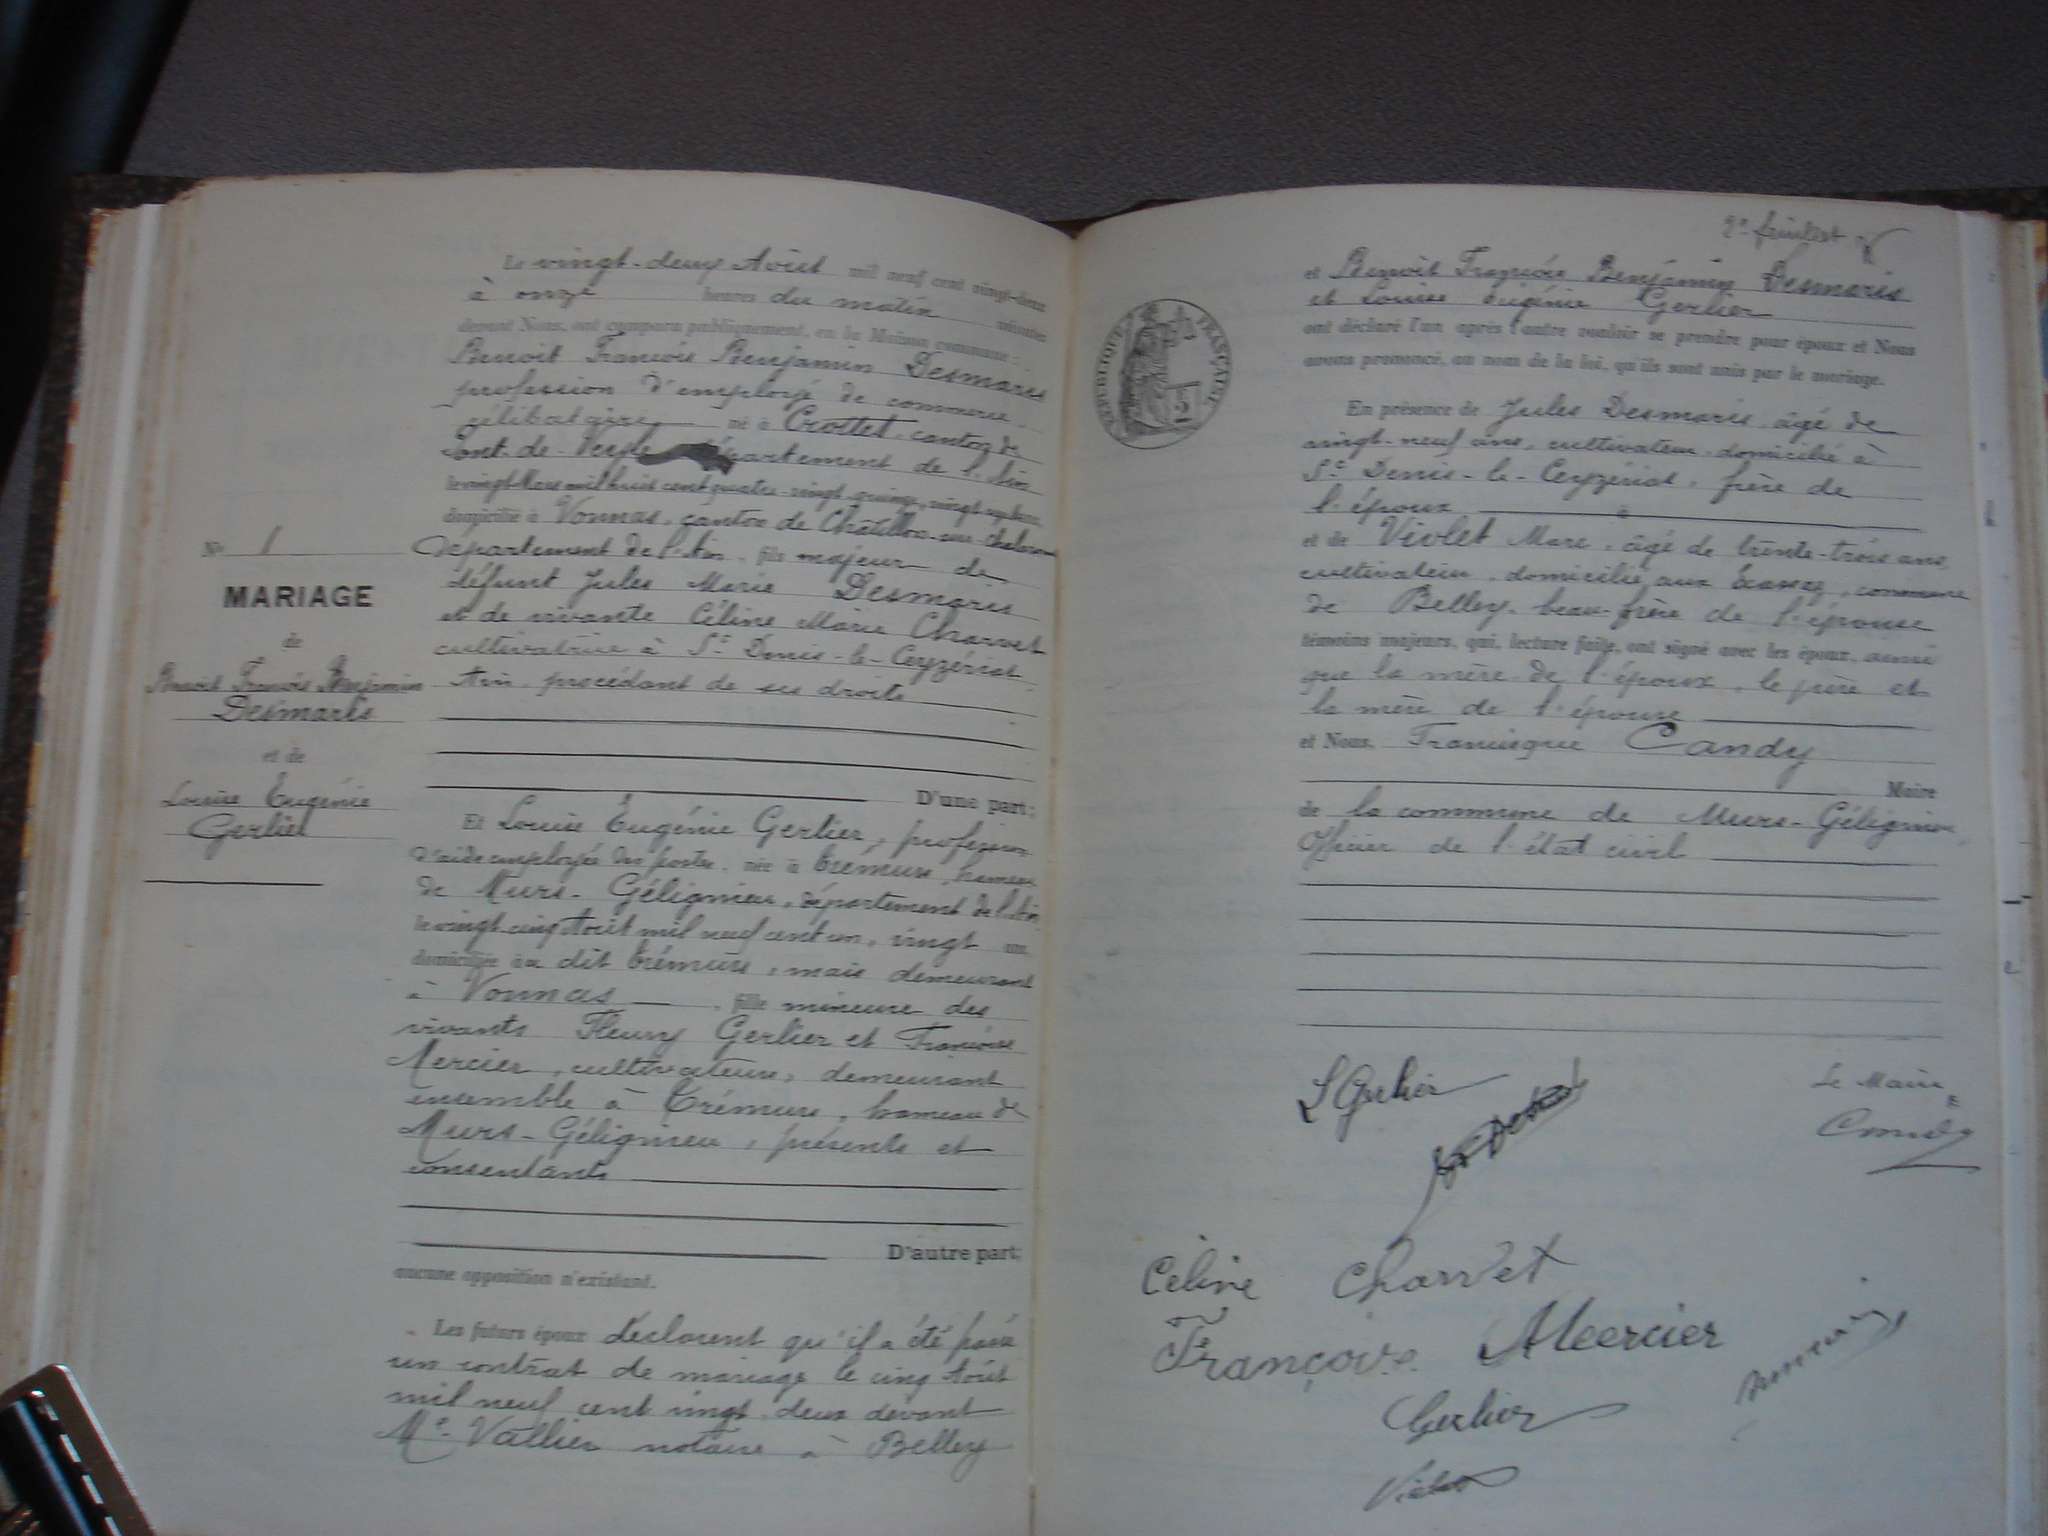 Le vingt-deux Août mil neuf cent vingt-deux
à onze heures du matin minutes
devant Nous, ont comparu publiquement, en la Maison commune :
Benoit François Benjamin Desmaris
profession d'employé de commerce
célibataire né à Crottet, canton de
Pont-de-Veyle département de l'Ain
le vingt Mars mil huit cent quatre-vingt-quinze, vingt-sept ans
domicilié à Vonnas, canton de Châtillon-sur-Chalaronne
département de l'Ain, fils majeur de
défunt Jules Marie Desmaris
et de vivante Céline Marie Charvet
cultivatrice à St Denis-le-Ceyzériat
Ain, procédant de ses droits
D'une part;
Et Louise Eugénie Gerlier, profession
d'aide employée des postes, née à Trémurs, hameau
de Murs-Gélignieu, département de l'Ain
le vingt-cinq Août mil neuf cent un, vingt ans
domiciliée au dit Trémurs, mais demeurant
à Vonnas, fille mineure des
vivants Fleury Gerlier et Françoise
Mercier, cultivateurs, demeurant
ensemble à Trémurs, hameau de
Murs-Gélignieu, présents et
consentants
D'autre part;
aucune opposition n'existant.
Les futurs époux déclarent qu'il a été passé
un contrat de mariage le cinq Août
mil neuf cent vingt-deux devant
Me Vallier notaire à Belley
No 1
MARIAGE
de
Benoit François Benjamin
Desmaris
et de
Louise Eugénie
Gerlier
2e feuillet
RÉPUBLIQUE FRANÇAISE
et Benoit François Benjamin Desmaris
et Louise Eugénie Gerlier
ont déclaré l'un après l'autre vouloir se prendre pour époux et Nous
avons prononcé, au nom de la loi, qu'ils sont unis par le mariage.
En présence de Jules Desmaris, âgé de
vingt-neuf ans, cultivateur, domicilié à
St Denis-le-Ceyzériat, frère de
l'époux
et de Violet Marc, âgé de trente-trois ans
cultivateur, domicilié aux Ecassaz, commune
de Belley, beau-frère de l'épouse
témoins majeurs, qui, lecture faite, ont signé avec les époux, ainsi
que la mère de l'époux, le père et
la mère de l'épouse
et Nous, Francisque Candy
Maire
de la commune de Murs-Gélignieu
Officier de l'état civil
L Gerlier
Le Maire
Candy
Céline Charvet
Françoise Mercier
Gerlier
Violet